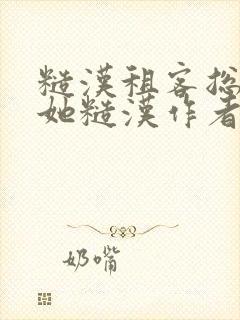 糙漢租客捻
她糙漢作者
奶嘴